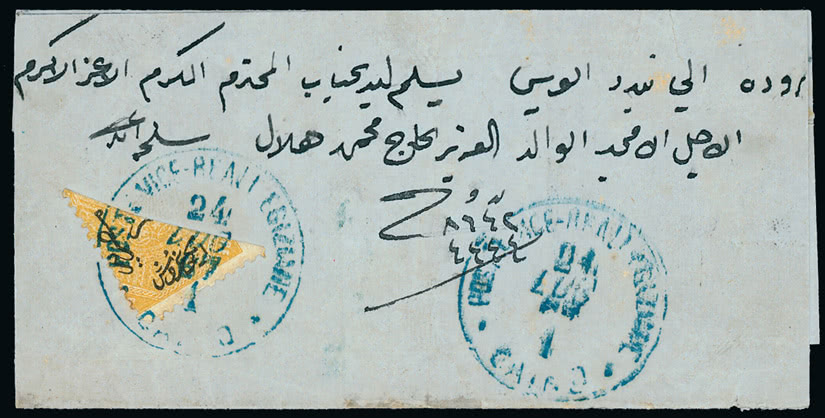 الي بندر السويس يسلم ليد جناب المحترم المكرم الاعز الاكرم
الاجل الامجد الوالد العزيز الحاج محمد هلال سلمه الله
٨٦٤٢
٤٤٤٤
POSTE VICE-REALI EGIZIANE
24
LUG
1
CAIRO
POSTE VICE-REALI EGIZIANE
24
LUG
1
CAIRO